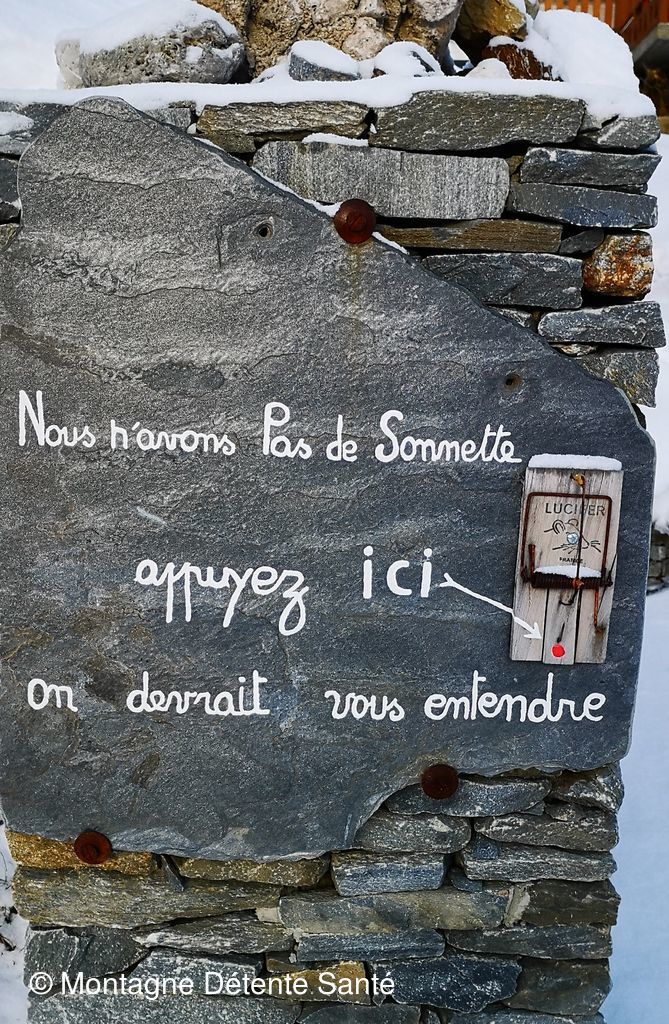 Nous n'avons Pas de Sonnette
LUCIFER
FRANCE
appuyez ici
on devrait vous entendre
© Montagne Détente Santé